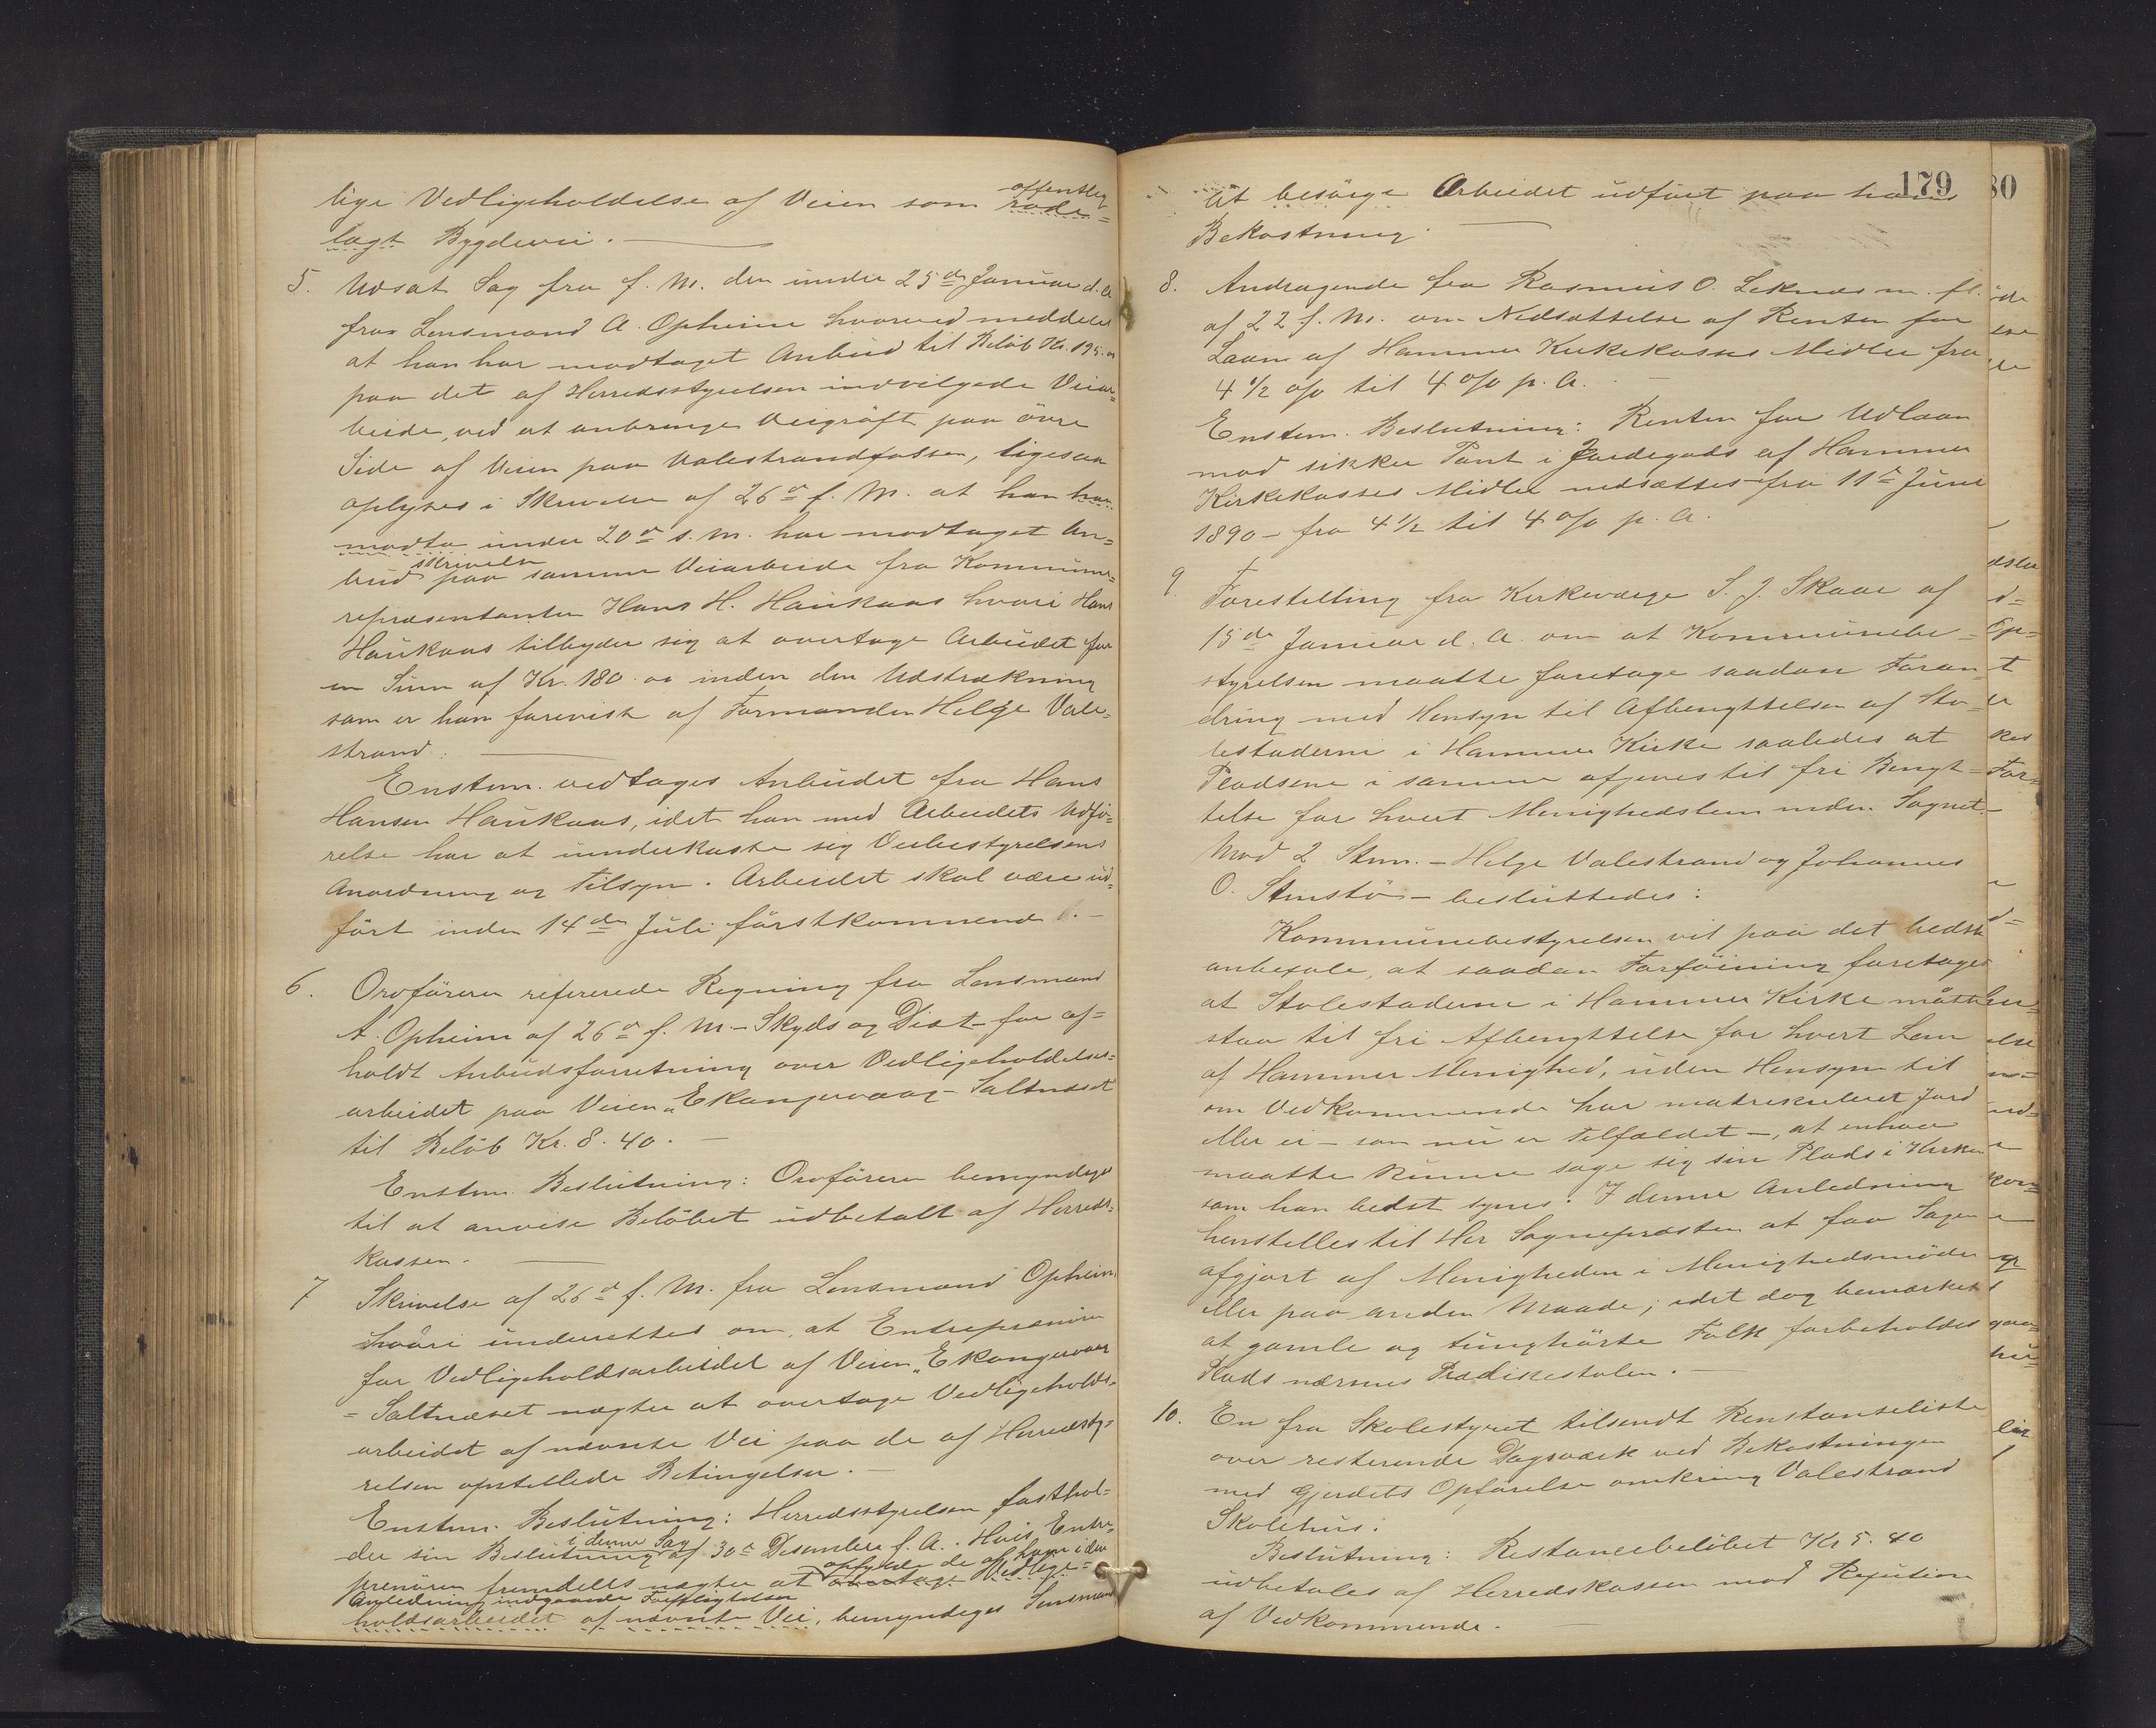 lige Vedligeholdelse af Veien som offentlig rode=
lagt Bygdevei. —
5. Udsat Sag fra f. M. den under 25de Januar d. A
fra Lensmand A. Opheim hvorved meddeles
at han har modtaget Anbud til Beløb Kr. 195.00
paa det af Herredsstyrelsen indvilgede Veiar=
beide, ved at anbringe Veigrøft paa øvre
Side af Veien paa Valestrandfossen, ligesaa
oplyses i Skrivelse af 26de f. M. at han han
modto under 20de s. M. har modtaget An=
bud skrivelse paa samme Veiarbeide fra Kommune=
repræsentanten Hans H. Haukaas hvori Hans
Haukaas tilbyder sig at overtage Arbeidet for
en Sum af Kr. 180.00 inden den Udstrækning
som er ham forevist af Formanden Helge Vale=
strand. —
Enstem. vedtages Anbudet fra Hans
Hansen Haukaas, idet han med Arbeidets Udfø=
relse har at underkaste sig Veibestyrelsens
Anordning og Tilsyn. Arbeidet skal være ud=
ført inden 14de Juli førstkommende. —
6. Ordføreren refererede Regning fra Lensmand
A. Opheim af 26de f. M. – Skyds og Diæt – for af=
holdt Anbudsforretning over Vedligeholdelses=
arbeidet paa Veien „Ekangervaag – Saltnæset
til Beløb Kr. 8.40. —
Enstem. Beslutning: Ordføreren bemyndiges
til at anvise Beløbet udbetalt af Herreds=
kassen. —
7 Skrivelse af 26de f. M. fra Lensmand Opheim
hvori underrettes om, at Entreprenøren
for Vedligeholdsarbeidet af Veien „Ekangervaag
= Saltnæset nægter at overtage Vedligeholds=
arbeidet af nævnte Vei paa de af Herredssty=
relsen opstillede Betingelser. —
Enstem. Beslutning: Herredsstyrelsen fasthol=
der sin Beslutning i denne Sag af 30de Desember f. A. Hvis Entre=
prenøren fremdeles nægter at opfylde de af ham i den overtage Vedlige=
Anledning indgaaede Forpligtelser
holdsarbeidet af nævnte Vei, bemyndiges Lensmand
179
at besørge Arbeidet udført paa hans
Bekostning. —
8. Andragende fra Rasmus O. Leknæs m. fl.
af 22 f. M. om Nedsættelse af Renten for
Laan af Hammer Kirkekasses Midler fra
4 1/2 o/o til 4 o/o p. A. —
Enstem. Beslutning: Renten for Udlaan
mod sikker Pant i Jordegods af Hammer
Kirkekasses Midler nedsættes fra 11te Juni
1890 – fra 4 1/2 til 4 o/o p. A.
9. Forestilling fra Kirkeværge S. J. Skaar af
15de Januar d. A. om at Kommunebe=
styrelsen maatte foretage saadan Foran=
dring med Hensyn til Afbenyttelsen af Sto=
lestaderne i Hammer Kirke saaledes at
Pladsene i samme afgives til fri Benyt=
telse for hvert Menighedslem inden Sognet.
Mod 2 Stem. – Helge Valestrand og Johannes
O. Stenstø – besluttedes:
Kommunebestyrelsen vil paa det bedste
anbefale, at saadan Forføining foretages
at Stolestaderne i Hammer Kirke maatte
staa til fri Afbenyttelse for hvert Lem
af Hammer Menighed, uden Hensyn til
om Vedkommende har matrikuleret Jord
eller ei – som nu er Tilfældet –, at enhver
maatte kunne søge sig sin Plads i Kirken
som han bedst synes. I denne Anledning
henstilles til Her Sognepræsten at faa Sagen
afgjort af Menigheden i Menighedsmøde
eller paa anden Maade; idet dog bemærkes
at gamle og tunghørte Folk forbeholdes
Plads nærmes Prædikestolen. —
10. En fra Skolestyret tilsendt Restanseliste
over resterende Dagsværk ved Bekostningen
med Gjerdets Opførelse omkring Valestrand
Skolehus.
Beslutning: Restancebeløbet Kr 5.40
udbetales af Herredskassen mod Refusion
af Vedkommende. —
80